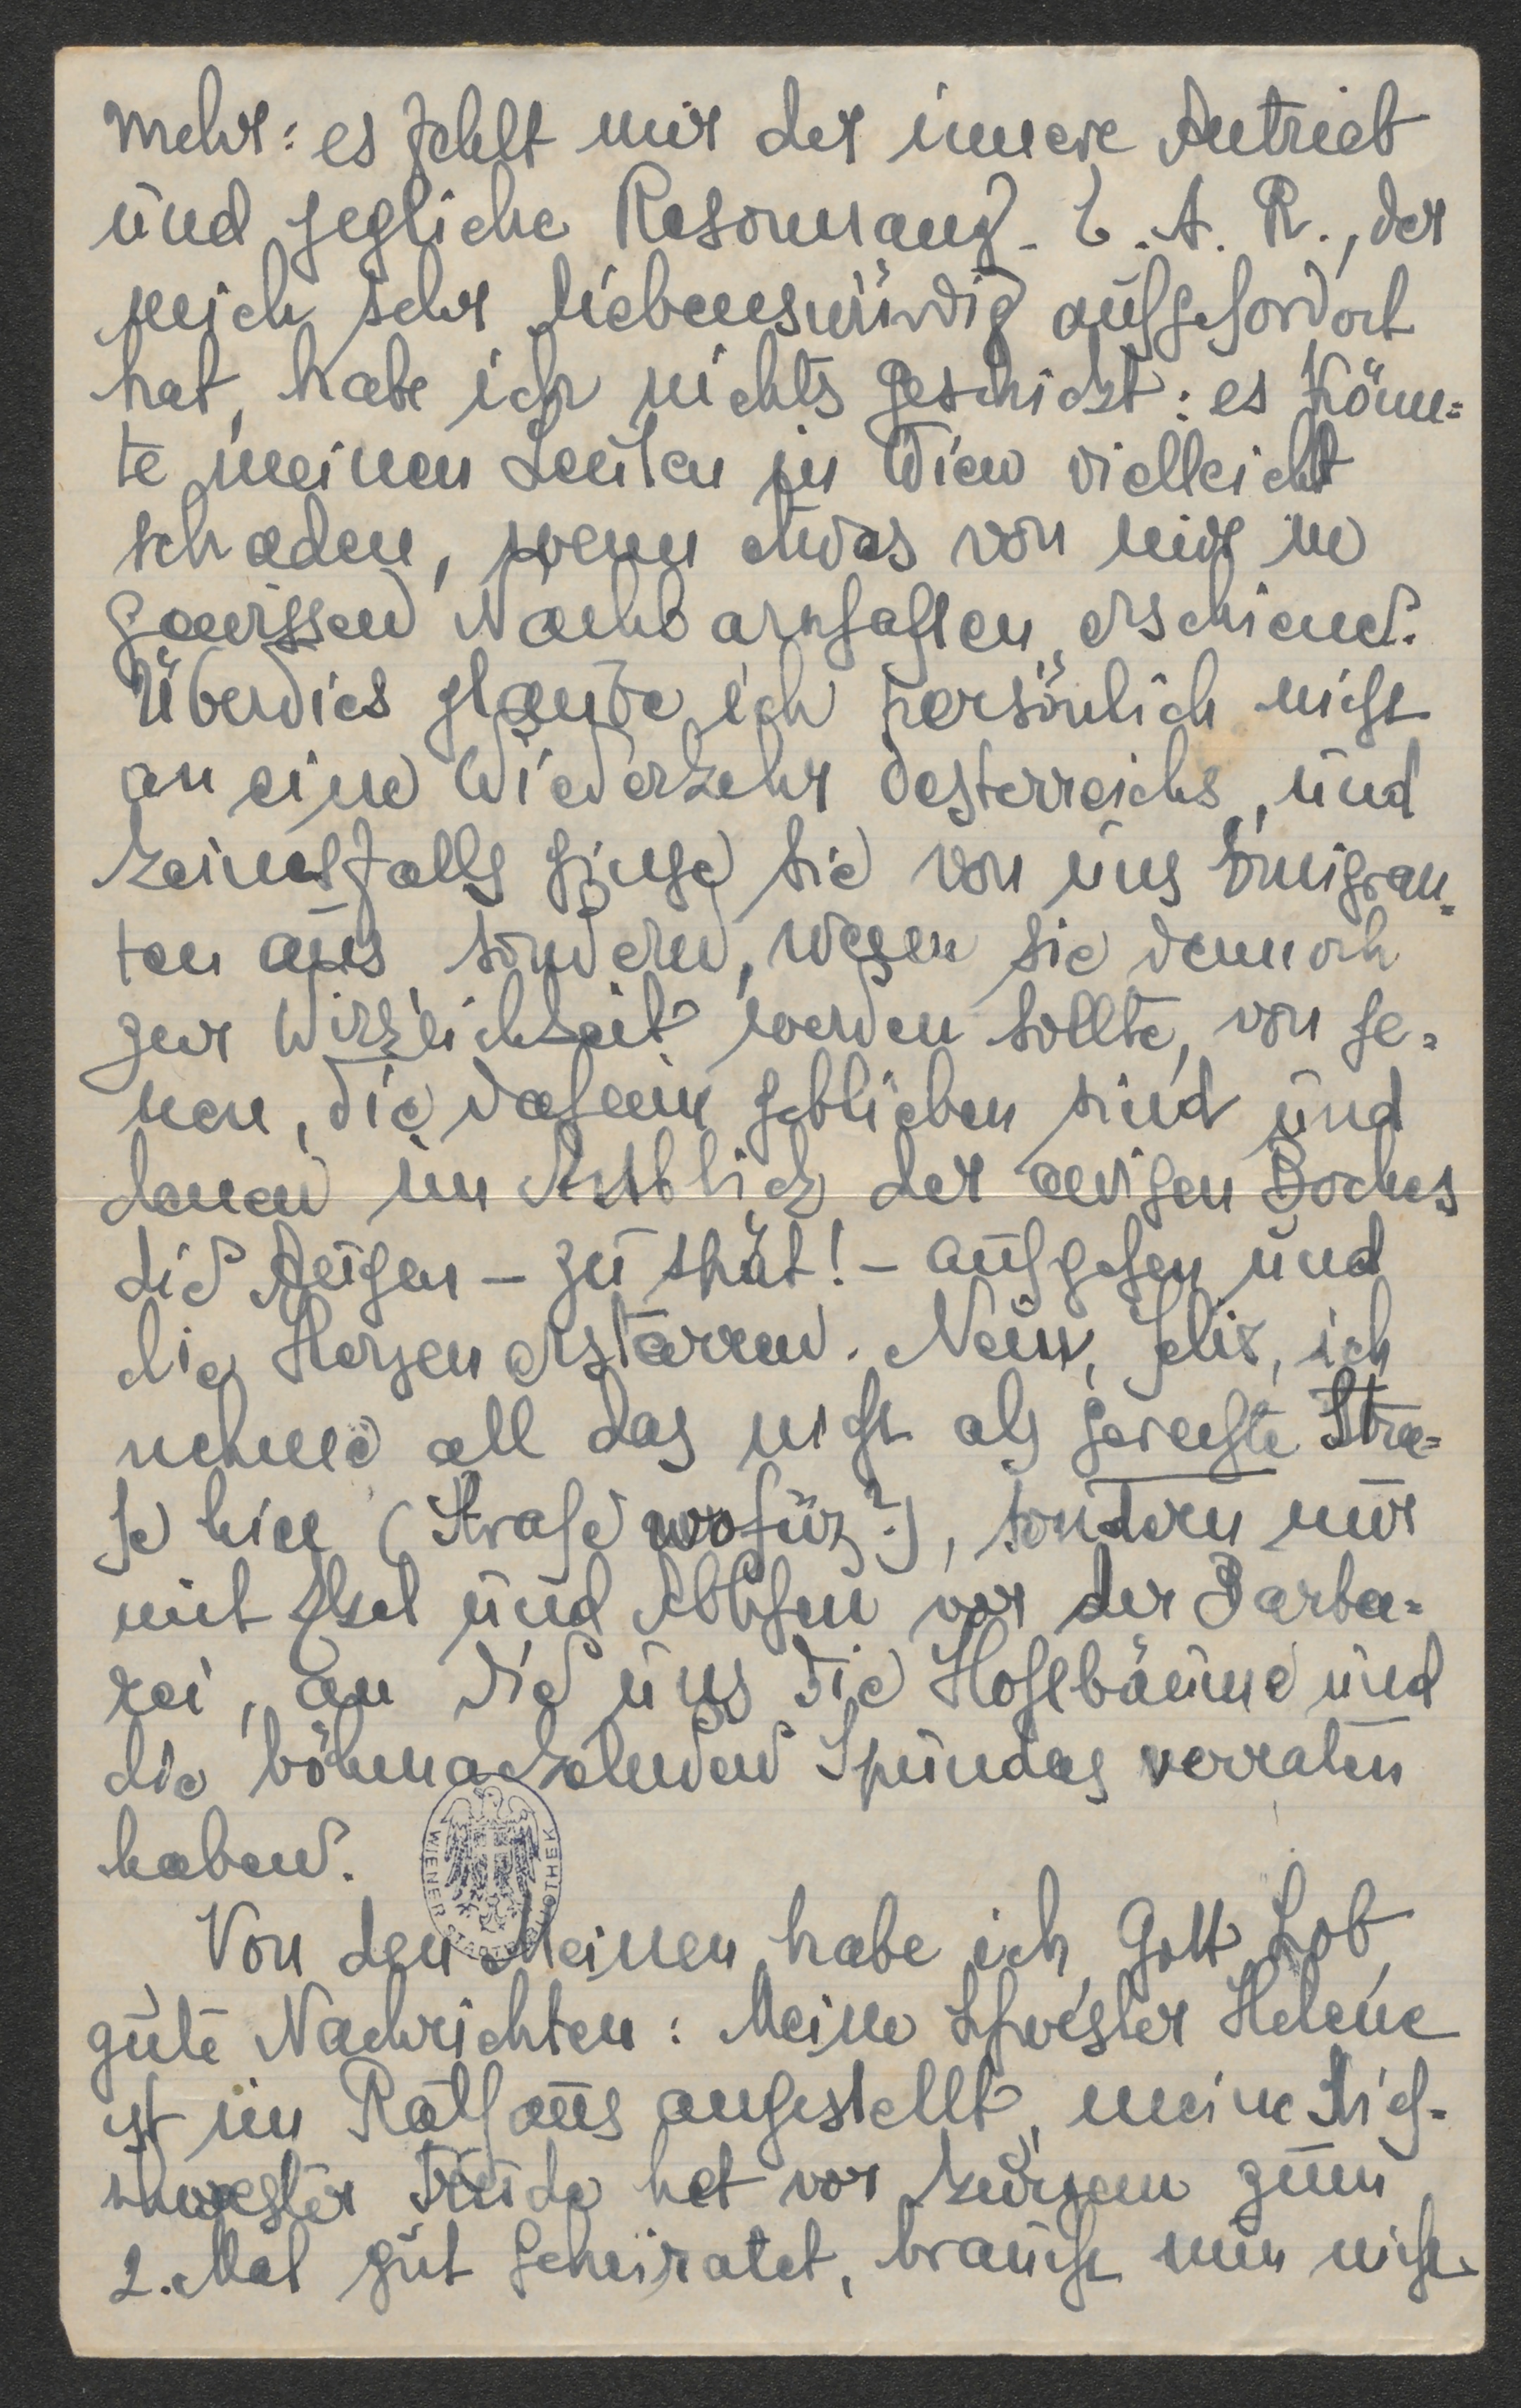 mehr: es fehlt mir der innere Antrieb
und jegliche Resonnanz. E. A. R., der
mich sehr liebenswürdig aufgefordert
hat, habe ich nichts geschickt: es könn=
te meinen Leuten in Wien vielleicht
schaden, wenn etwas von mir in
gewissen Nachbarschaften erschiene.
Überdies glaube ich persönlich nicht
an eine Wiederkehr Oesterreichs, und
keinesfalls ginge sie von uns Emigran=
ten aus, sondern, wenn sie dennoch
zur Wirklichkeit werden sollte, von je=
nen, die daheim geblieben sind und
denen im Anblick der ewigen Boches
die Augen – zu spät! – aufgehen und
die Herzen erstarren. Nein, Felix, ich
nehme all das nicht als gerechte Stra=
fe hin (Strafe wofür?), sondern nur
mit Ekel und Abscheu vor der Barba=
rei, an die uns die Hohlbäume und
die böhmackelnden Spundas verraten
haben.
WIENER STADTBIBLIOTHEK
Von den Meinen habe ich, Gott Lob,
gute Nachrichten: Meine Schwester Helene
ist im Rathaus angestellt, meine Stief=
schwester Trude hat vor kurzem zum
2. Mal gut geheiratet, braucht nun nicht